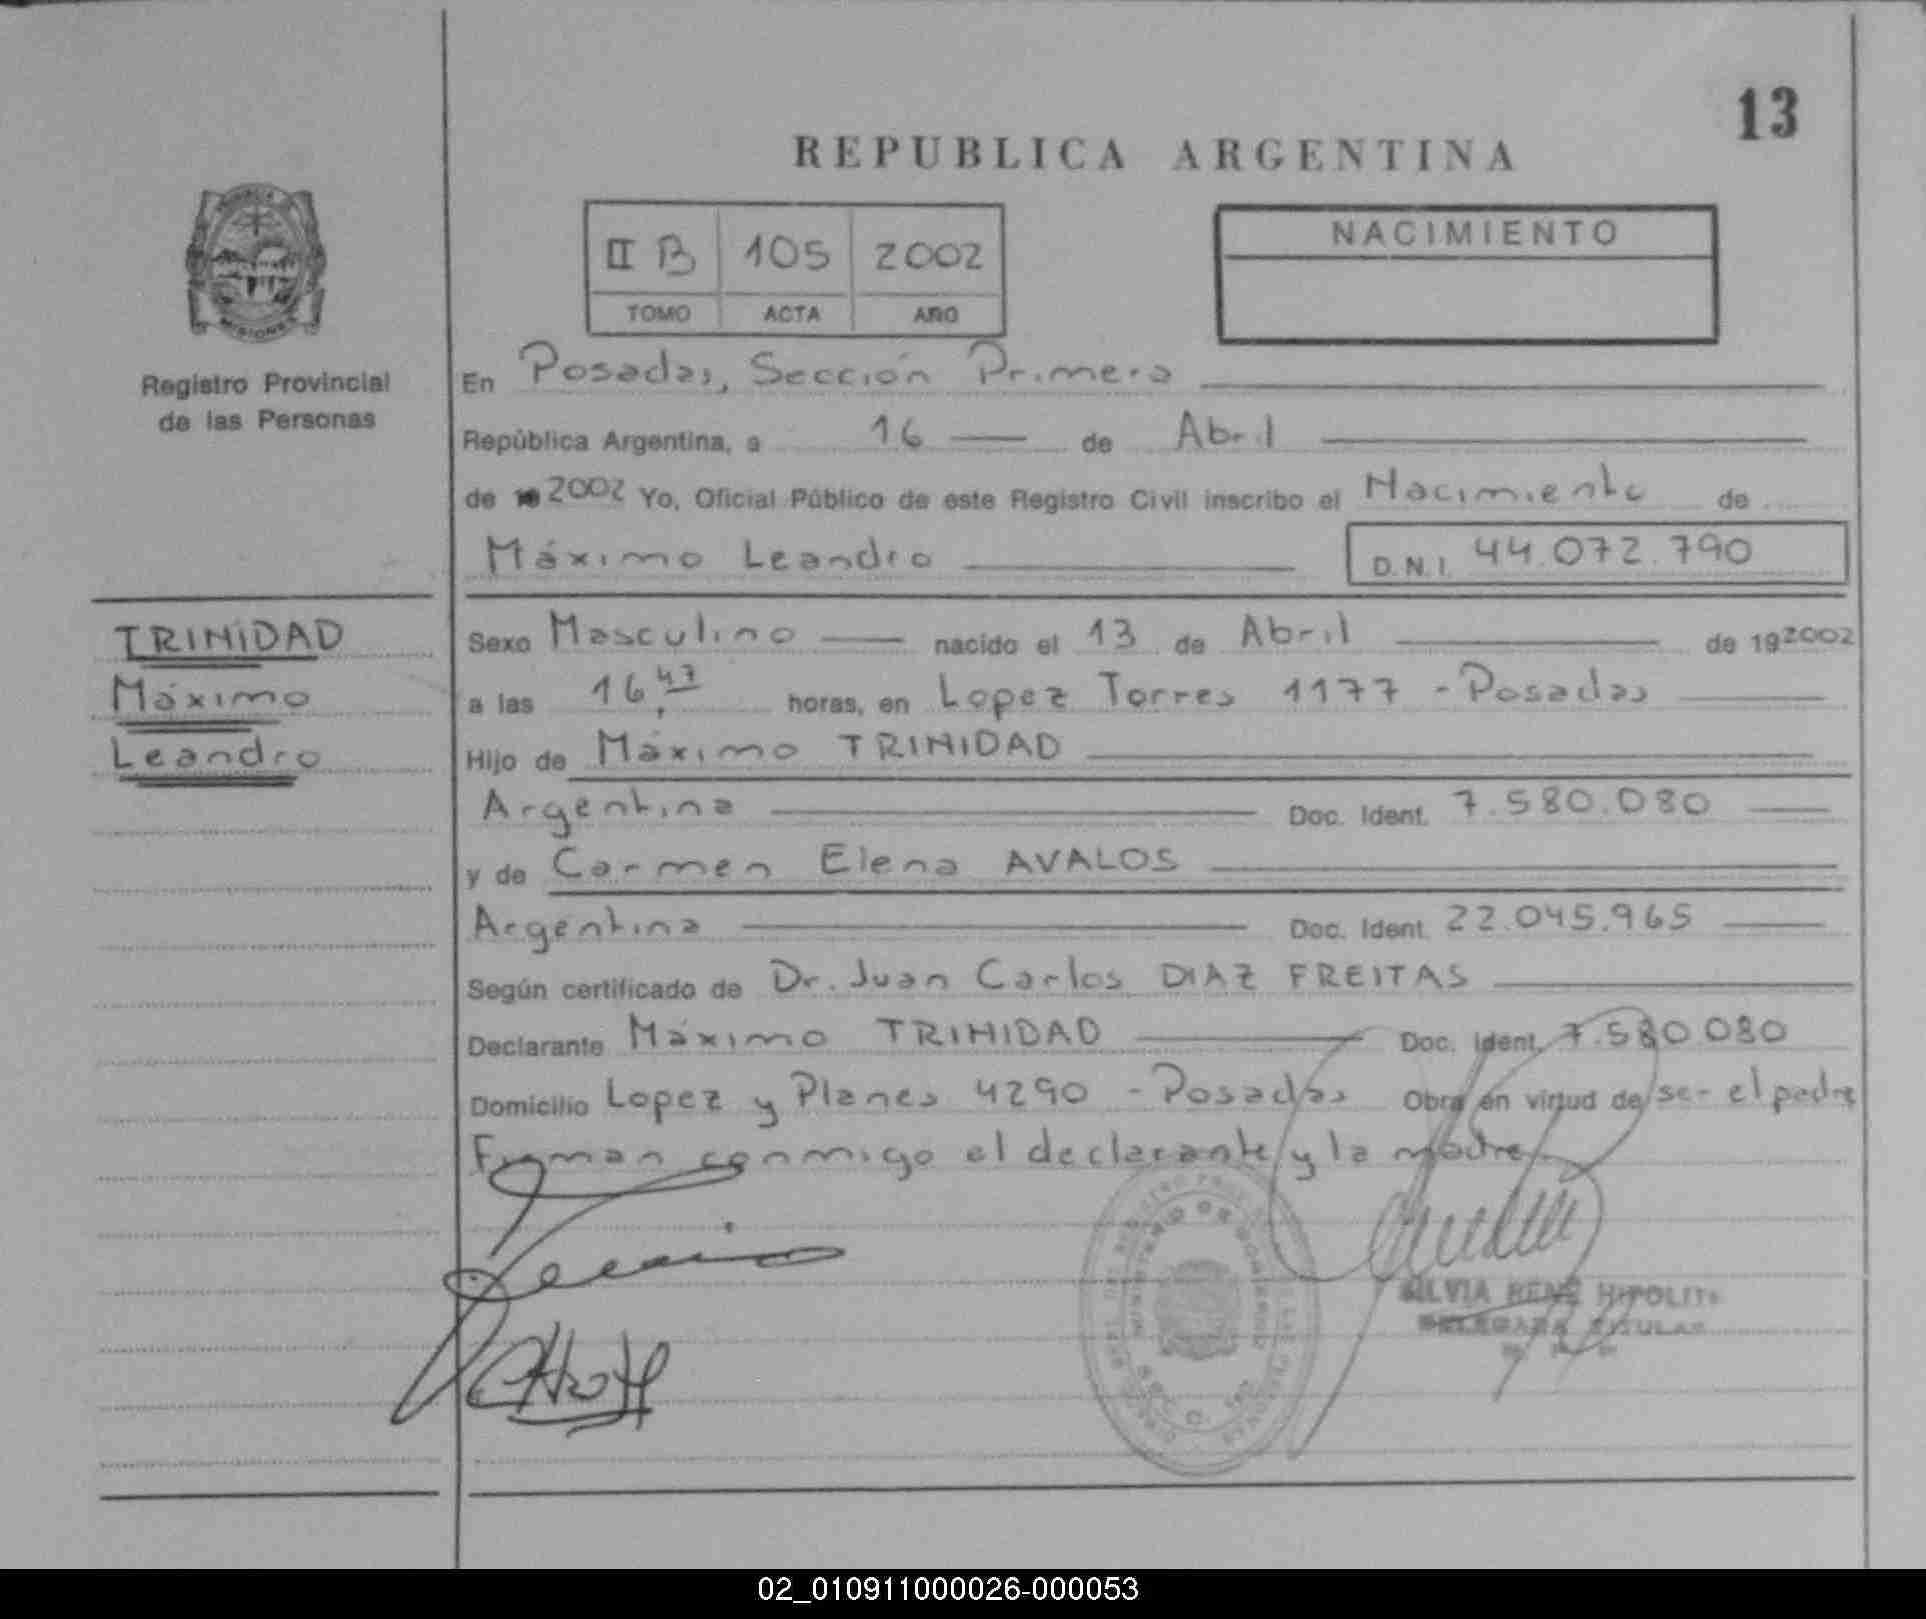 13
REPUBLICA ARGENTINA
II B 105 2002
TOMO ACTA AÑO
NACIMIENTO
MISIONES
Registro Provincial
de las Personas
En Posadas, Sección Primera
República Argentina, a 16 de Abril
de 2002 Yo, Oficial Público de este Registro Civil inscribo el Nacimiento de
Máximo Leandro D.N.I. 44.072.790
TRINIDAD
Máximo
Leandro
Sexo Masculino nacido el 13 de Abril de 192002
a las 16,47 horas, en Lopez Torres 1177 - Posadas
Hijo de Máximo TRINIDAD
Argentina Doc. Ident. 7.580.080
y de Carmen Elena AVALOS
Argentina Doc. Ident. 22.045.965
Según certificado de Dr. Juan Carlos DIAZ FREITAS
Declarante Máximo TRINIDAD Doc. Ident. 7.580.080
Domicilio Lopez y Planes 4290 - Posadas Obra en virtud de ser el padre
Firman conmigo el declarante y la madre
SILVIA RENE HIPOLITO
DELEGADA TITULAR
02_010911000026-000053